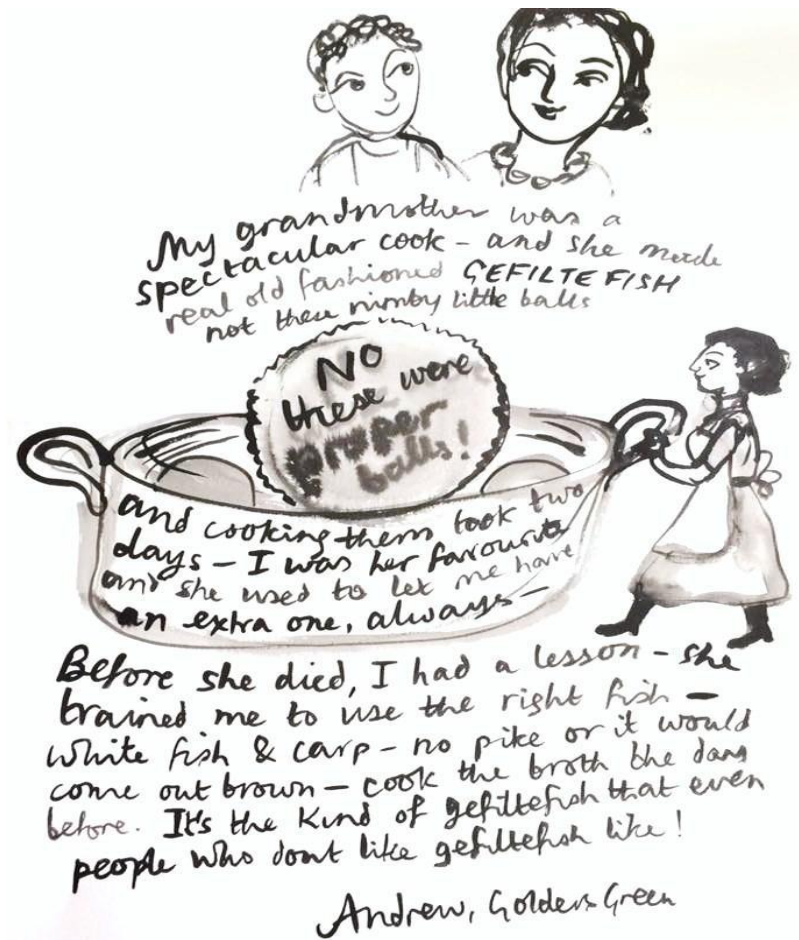 My grandmother was a
spectacular cook – and she made
real old fashioned GEFILTE FISH
not these nimby little balls
NO
these were
proper
balls!
and cooking them took two
days – I was her favourite
and she used to let me have
an extra one, always –
Before she died, I had a lesson – she
trained me to use the right fish –
white fish & carp – no pike or it would
come out brown – cook the broth the day
before. It's the kind of gefiltefish that even
people who dont like gefiltefish like!
Andrew, Golders Green